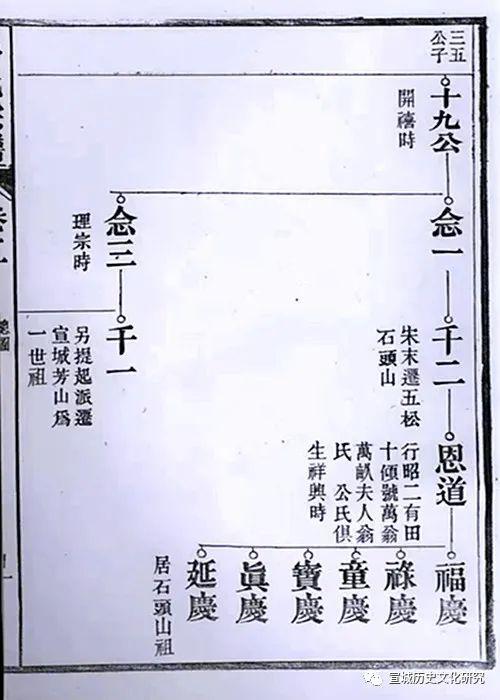 三五
公子
十九公
開禧時
念一
念三
理宗時
千二
朱末遷五松
石頭山
千一
另提起派遷
宣城芳山爲
一世祖
恩道
行昭二有田
十傾號萬翁
萬畝夫人翁
氏 公氏俱
生祥興時
福慶
祿慶
童慶
寶慶
眞慶
延慶
居石頭山祖
宣城历史文化研究